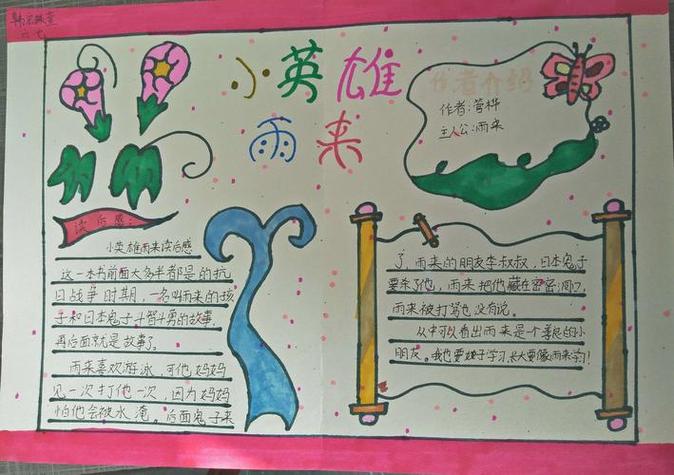 小英雄
雨来
作者介绍
作者:管桦
主人公:雨来
读后感:
小英雄雨来读后感
这一本书前面大多半都是的抗
日战争时期,一名叫雨来的孩
子和日本鬼子斗智斗勇的故事,
再后面就是故事了。
雨来喜欢游泳,可他妈妈
见一次打他一次,因为妈妈
怕他会被水淹。后面鬼子来
了,雨来的朋友李叔叔,日本鬼子
要杀了他,雨来把他藏在密密洞口,
雨来被打骂也没有说。
从中可以看出雨来是个善良的小
朋友。我也要好好学习,长大要像雨来学习!